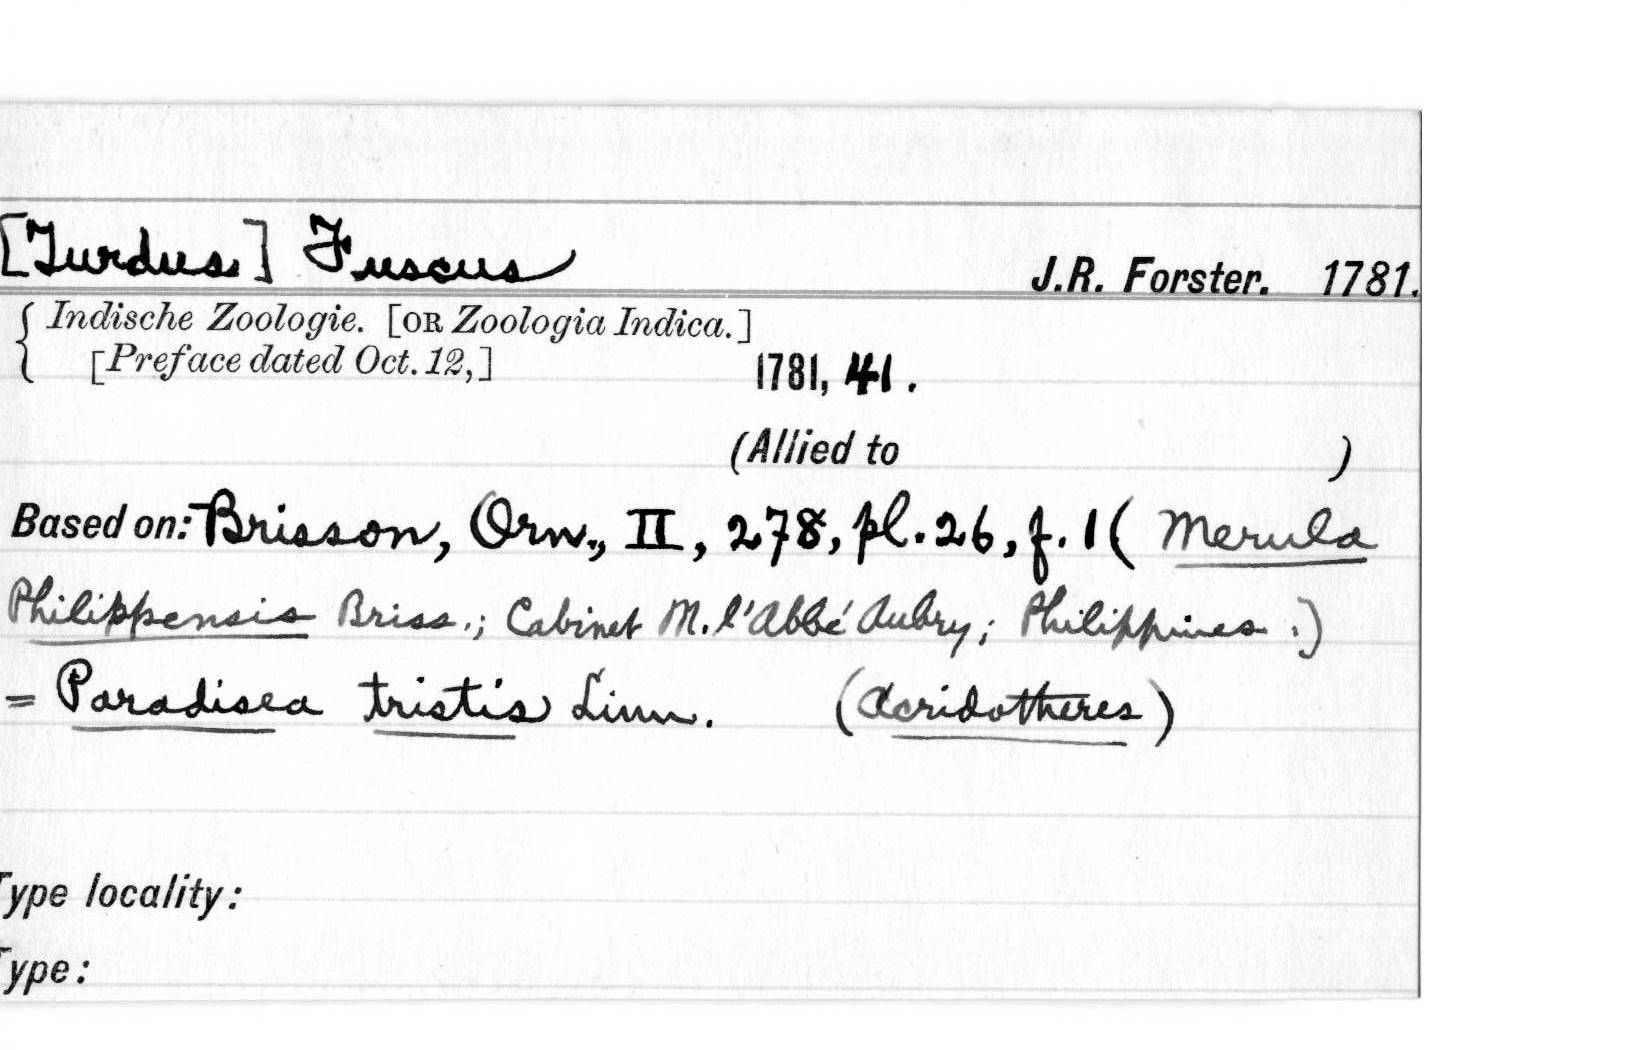 [Turdus] Fuscus J.R. Forster. 1781.
{ Indische Zoologie. [OR Zoologia Indica.]
[Preface dated Oct. 12,] 1781, 41.
(Allied to )
Based on: Brisson, Orn., II, 278, pl. 26, f. 1 ( Merula
Philippensis Briss.; Cabinet M. l'Abbé Aubry; Philippines.)
= Paradisea tristis Linn. (Acridotheres)
Type locality:
Type: